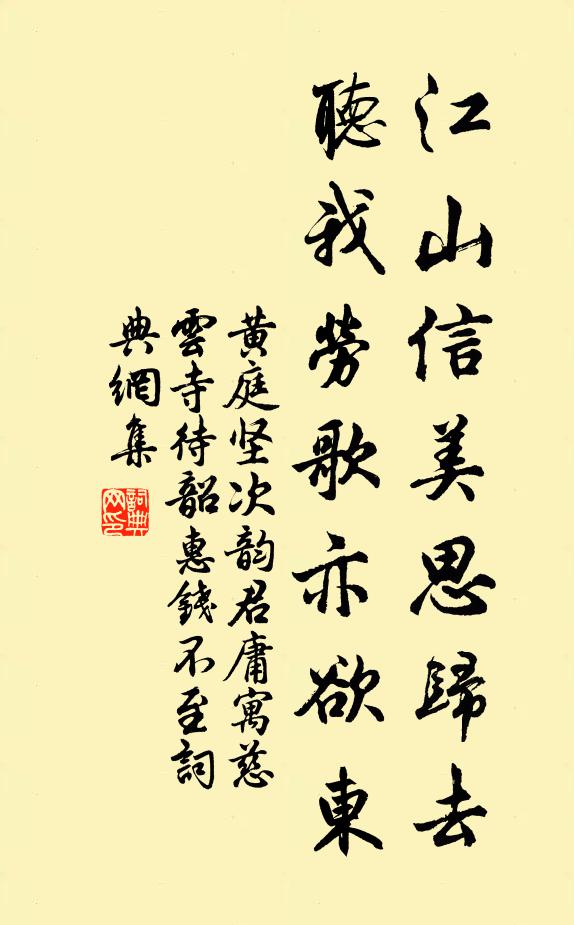 江山信美思歸去
聽我勞歌亦欲東
黄庭坚次韵君庸寓慈
雲寺待韶惠錢不至詞
典網集
詞典网印